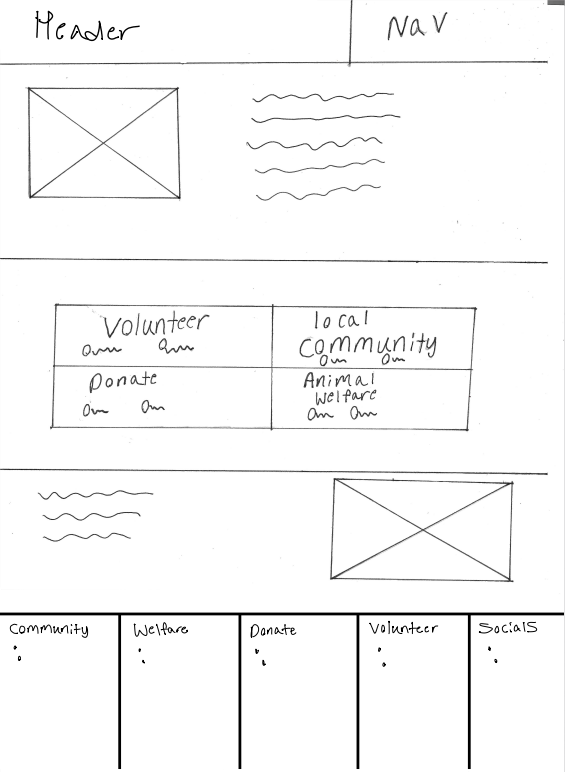 Header
Nav
Volunteer
local
community
Donate
Animal
Welfare
Community
Welfare
Donate
Volunteer
Socials